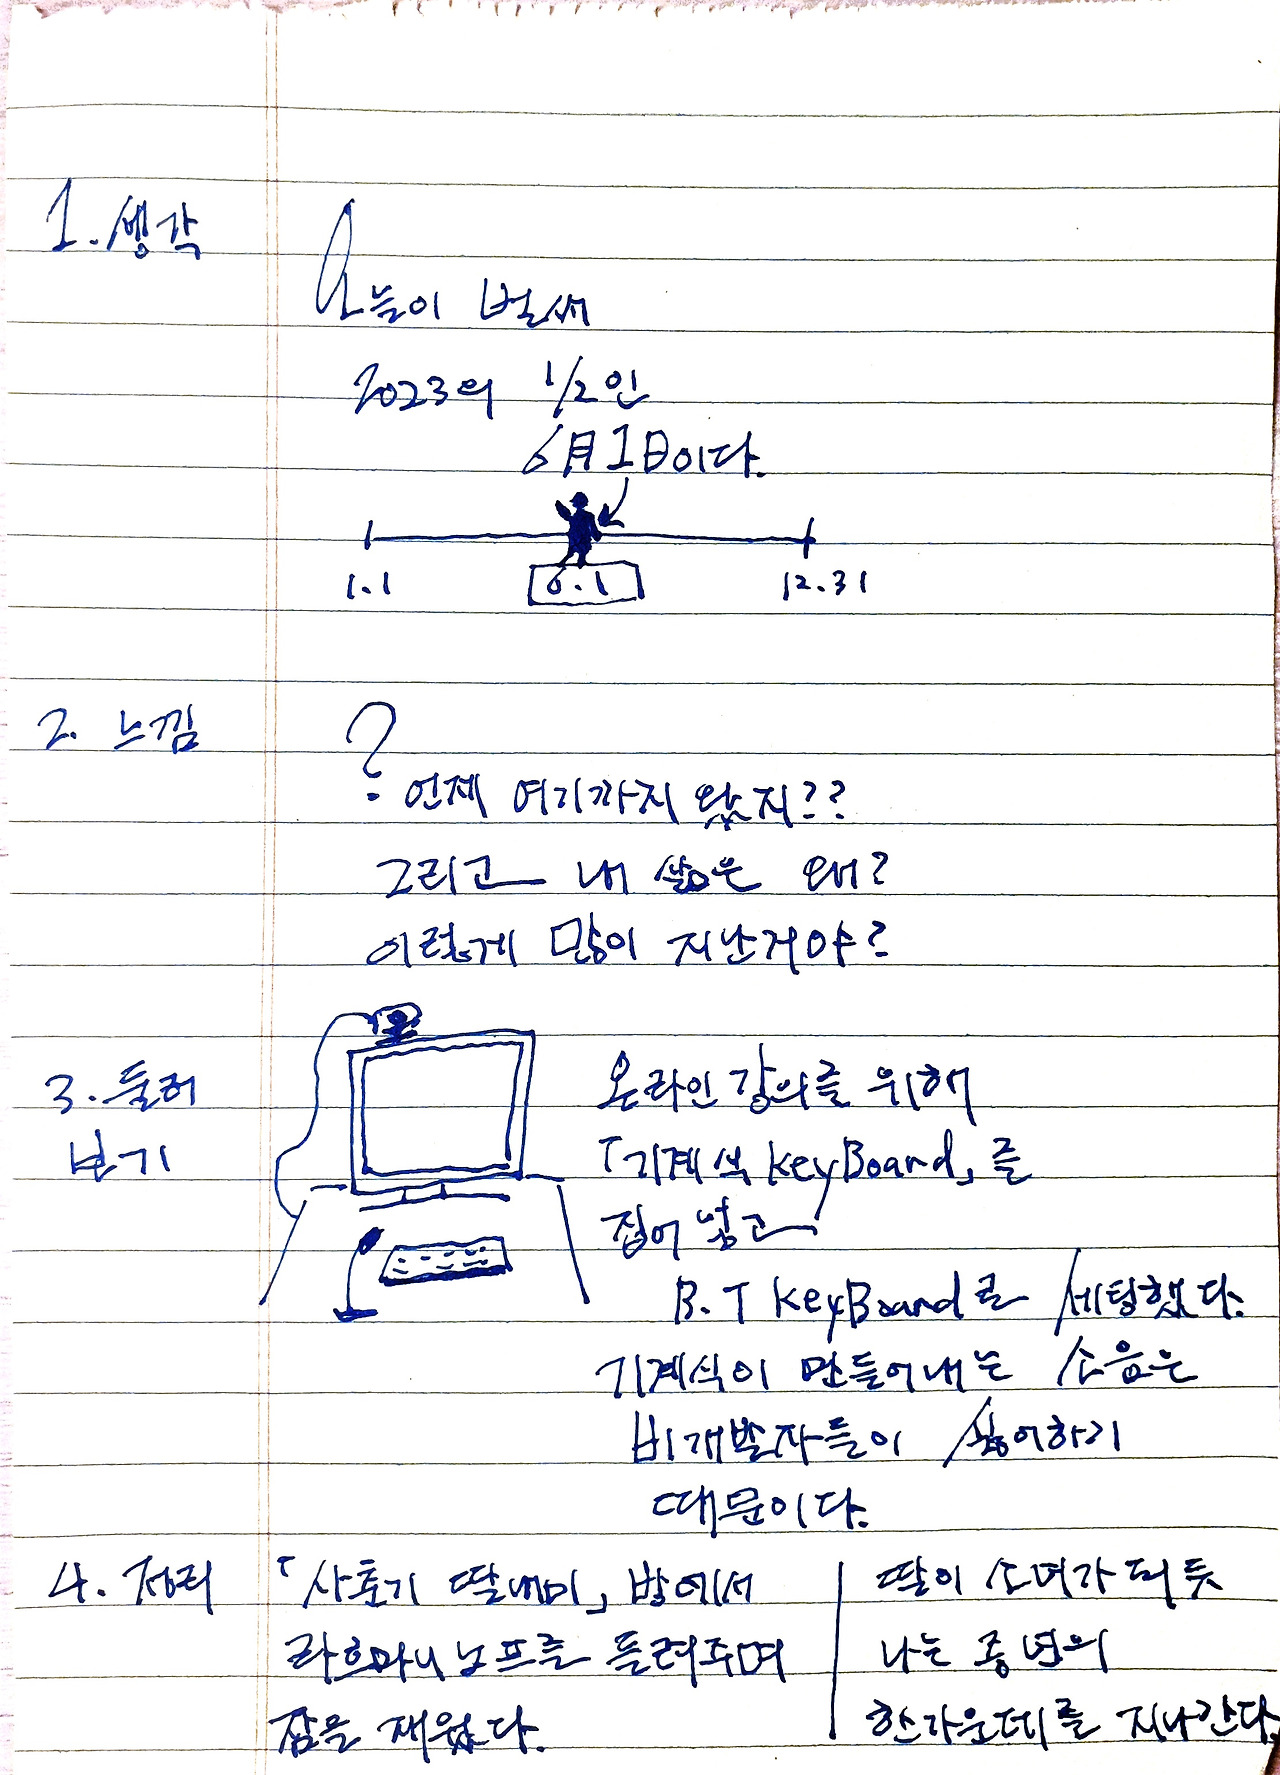 1. 생각
오늘이 벌써
2023의 1/2인
6月 1日이다.
1.1 6.1 12.31
2. 느낌
? 언제 여기까지 왔지??
그리고 내 삶은 왜?
이렇게 많이 지난거야?
3. 둘러
보기
온라인 강의를 위해
「기계식 KeyBoard」를
집어 넣고
B.T KeyBoard로 세팅했다.
기계식이 만들어내는 소음은
비개발자들이 싫어하기
때문이다.
4. 정리
「사춘기 딸내미」 방에서
라흐마니노프를 들려주며
잠을 재웠다.
딸이 소녀가 되듯
나는 중년의
한가운데를 지나간다.